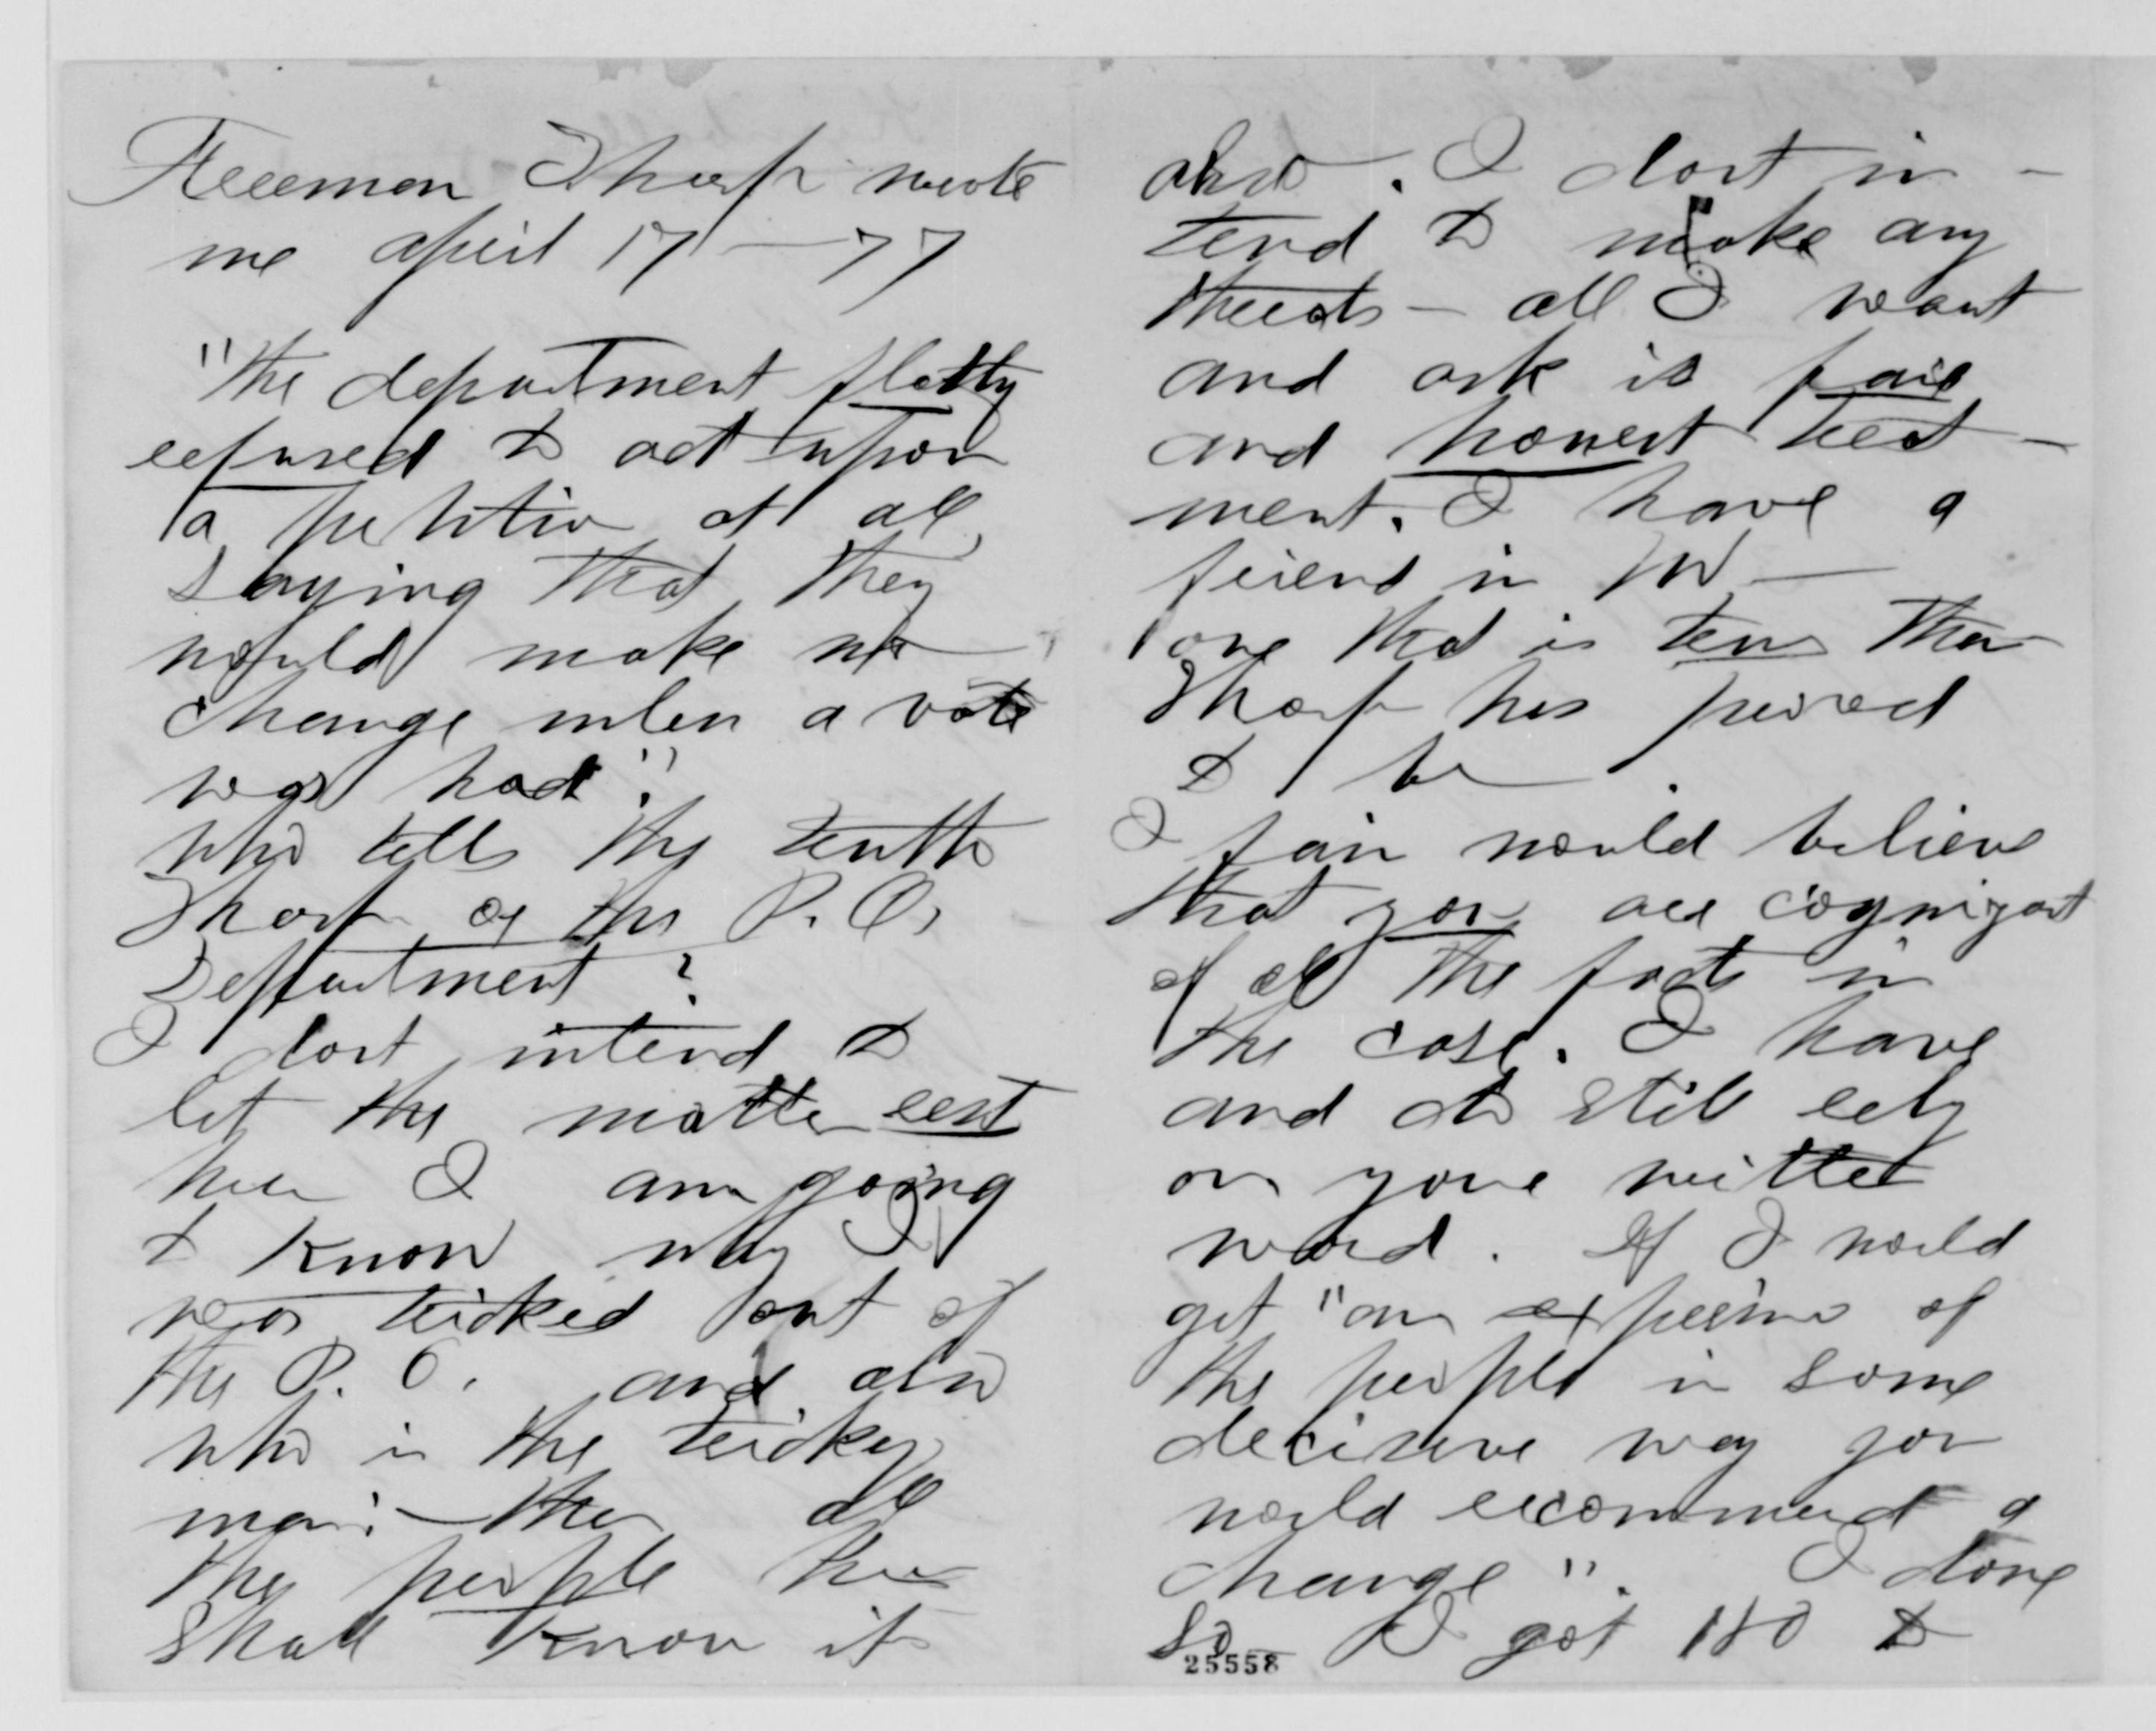 Freeman Thorp wrote
me april 17 — 77
"the department flatly
refused to act upon
a petition at all,
saying that they
would make no
change unless a vote
was had".
who tells the truth
Thorp or the P. O.
Department?
I dont intend to
let the matter rest
here I am going
to know why I
was tricked out of
the P. O. and also
who is the tricky
man: — then all
the people here
shall know it
also. I dont in -
tend to make any
threats — all I want
and ask is fair
and honest treat -
ment. I have a
friend in W —
one that is truer than
Thorp has proved
to be.
I fain would believe
that you are cognizant
of all the facts in
the case. I have
and do still rely
on your written
word. If I would
get "an expression of
the people in some
decisive way you
would recommend a
change". I done
so I got 180 to
25558